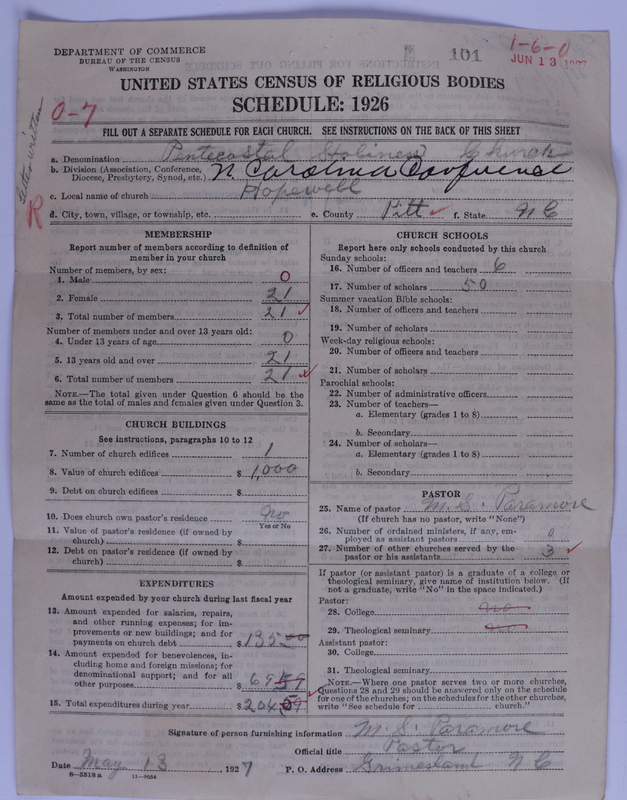 DEPARTMENT OF COMMERCE
BUREAU OF THE CENSUS
WASHINGTON
101
1-6-0
JUN 13
UNITED STATES CENSUS OF RELIGIOUS BODIES
SCHEDULE: 1926
0-7
Letter written
R
FILL OUT A SEPARATE SCHEDULE FOR EACH CHURCH. SEE INSTRUCTIONS ON THE BACK OF THIS SHEET
a. Denomination Pentecostal Holiness Church
b. Division (Association, Conference, Diocese, Presbytery, Synod, etc.) N Carolina Conference
c. Local name of church Hopewell
d. City, town, village, or township, etc. e. County Pitt f. State N C
MEMBERSHIP
Report number of members according to definition of
member in your church
Number of members, by sex:
1. Male 0
2. Female 21
3. Total number of members 21
Number of members under and over 13 years old:
4. Under 13 years of age 0
5. 13 years old and over 21
6. Total number of members 21
NOTE.—The total given under Question 6 should be
same as the total of males and females given under Question 3.
CHURCH BUILDINGS
See instructions, paragraphs 10 to 12
7. Number of church edifices 1
8. Value of church edifices $ 1,000
9. Debt on church edifices $
10. Does church own pastor's residence No
Yes or No
11. Value of pastor's residence (if owned by
church) $
12. Debt on pastor's residence (if owned by
church) $
EXPENDITURES
Amount expended by your church during last fiscal year
13. Amount expended for salaries, repairs,
and other running expenses; for im-
provements or new buildings; and for
payments on church debt $ 135 00
14. Amount expended for benevolences, in-
cluding home and foreign missions; for
denominational support; and for all
other purposes $ 69 59
15. Total expenditures during year $ 204 59
CHURCH SCHOOLS
Report here only schools conducted by this church
Sunday schools:
16. Number of officers and teachers 6
17. Number of scholars 50
Summer vacation Bible schools:
18. Number of officers and teachers
19. Number of scholars
Week-day religious schools:
20. Number of officers and teachers
21. Number of scholars
Parochial schools:
22. Number of administrative officers
23. Number of teachers—
a. Elementary (grades 1 to 8)
b. Secondary
24. Number of scholars—
a. Elementary (grades 1 to 8)
b. Secondary
PASTOR
25. Name of pastor M. S. Paramore
(If church has no pastor, write "None")
26. Number of ordained ministers, if any, em-
ployed as assistant pastors 0
27. Number of other churches served by the
pastor or his assistants 3
If pastor (or assistant pastor) is a graduate of a college or
theological seminary, give name of institution below. (If
not a graduate, write "No" in the space indicated.)
Pastor:
28. College no
29. Theological seminary no
Assistant pastor:
30. College
31. Theological seminary
NOTE.—Where one pastor serves two or more churches,
Questions 28 and 29 should be answered only on the schedule
for one of the churches; on the schedules for the other churches,
write "See schedule for church."
Signature of person furnishing information M. S. Paramore
Official title Pastor
Date May 13, 1927 P. O. Address Grimesland N C
8—5318a 11—9054